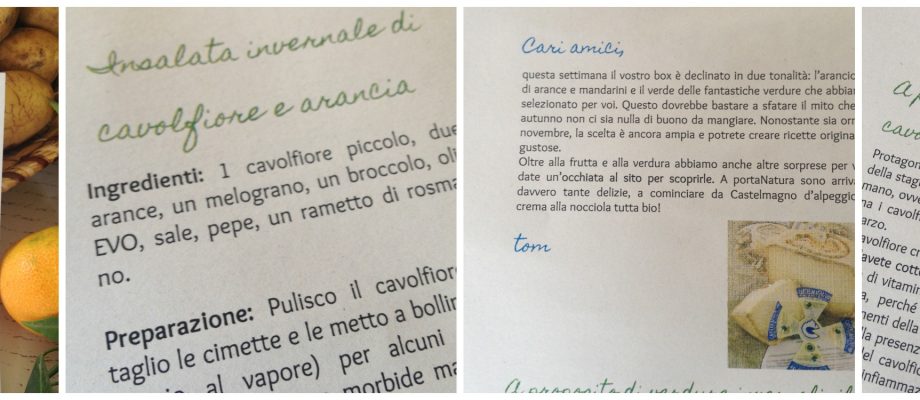 Insalata invernale di
cavolfiore e arancia
Ingredienti: 1 cavolfiore piccolo, due
arance, un melograno, un broccolo,
EVO, sale, pepe, un rametto di
no.
Preparazione: Pulisco il
taglio le cimette e le metto a
al vapore) per alcuni
morbide
Cari amici,
questa settimana il vostro box è declinato in due tonalità:
di arance e mandarini e il verde delle fantastiche verdure che
selezionato per voi. Questo dovrebbe bastare a sfatare il mito che
autunno non ci sia nulla di buono da mangiare. Nonostante sia
novembre, la scelta è ancora ampia e potrete creare ricette
gustose.
Oltre alla frutta e alla verdura abbiamo anche altre sorprese per
date un'occhiata al sito per scoprirle. A portaNatura sono
davvero tante delizie, a cominciare da Castelmagno
crema alla nocciola tutta bio!
tom
A proposito di verdura
della
i
di
perché
della
la